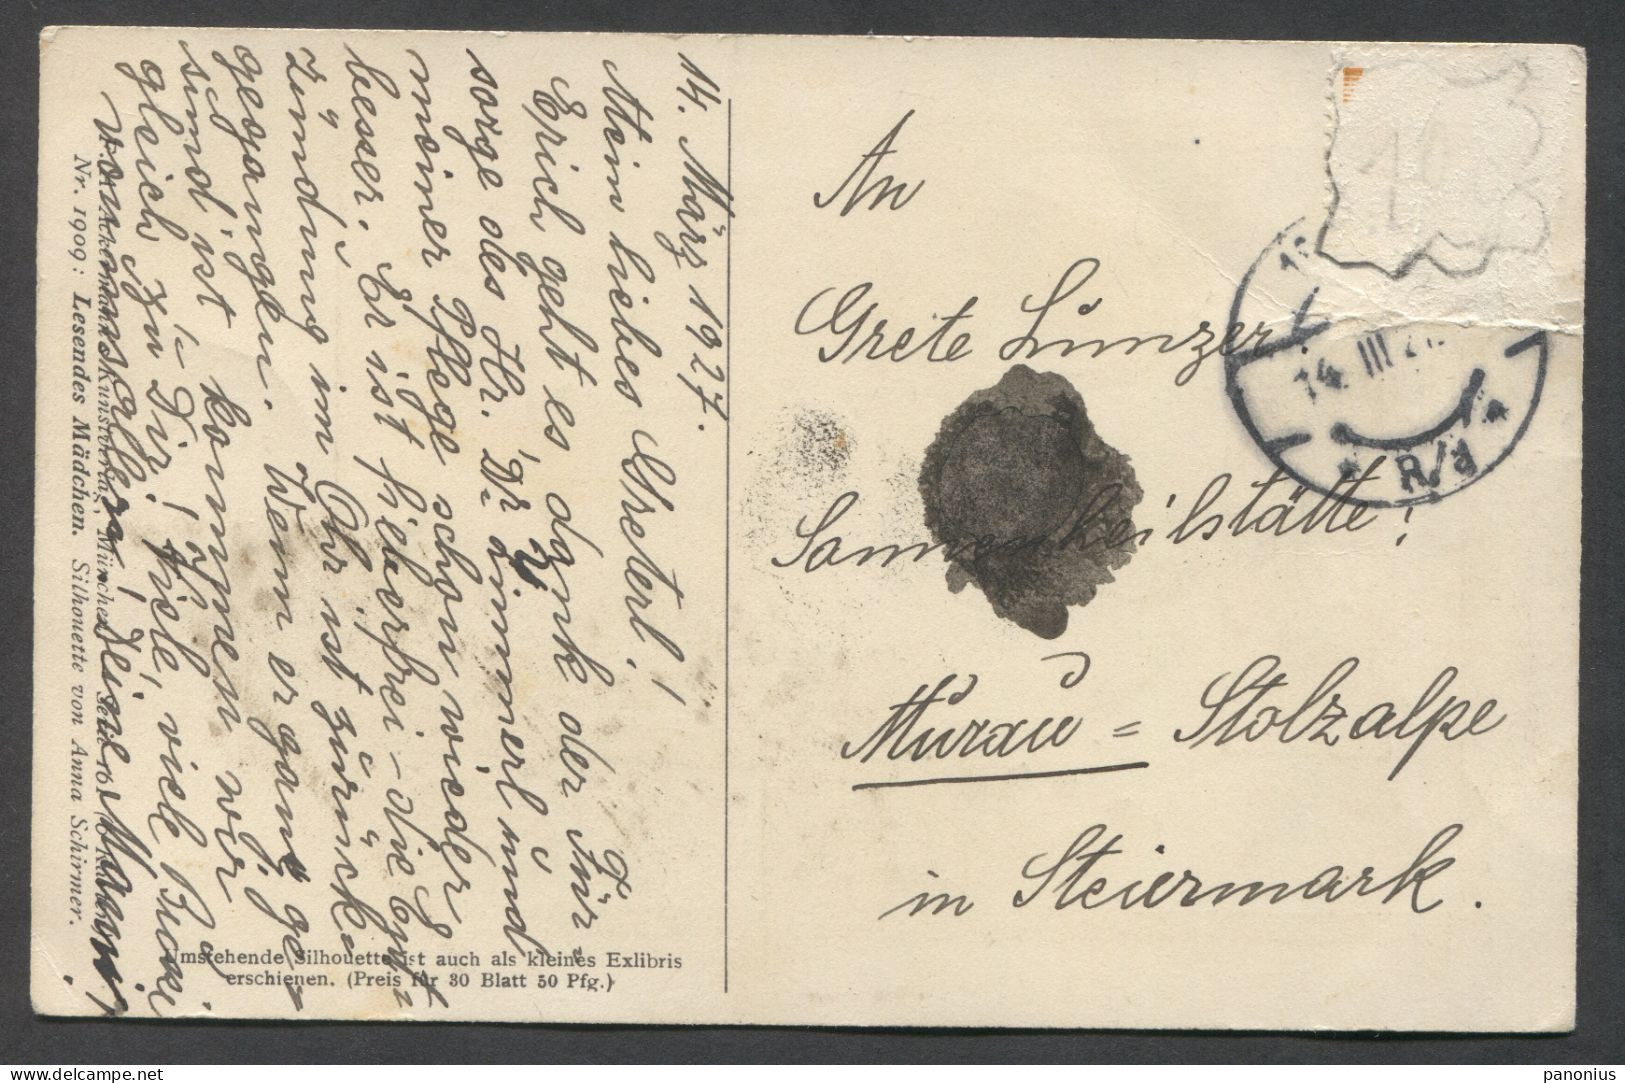 14. März 1927.
Mein liebes Greterl!
Erich geht es dank der Für-
sorge des Hr. Dr. und
meiner Pflege schon wieder
besser. Er ist fieberfrei - die Ent-
zündung im Ohr ist zurück-
gegangen. Wenn er ganz ge-
sund ist kommen wir
gleich zu Dir! Viele, viele Bussi
von uns allen! Deine Mammi.
Ackermanns Kunstverlag, München.
Nr. 1909: Lesendes Mädchen. Silhouette von Anna Schirmer.
Umstehende Silhouette ist auch als kleines Exlibris
erschienen. (Preis für 30 Blatt 50 Pfg.)
An
Grete Lunzer.
Sonnenheilstätte;
Murau = Stolzalpe
in Steiermark.
14. III 27
delcampe.net
panonius